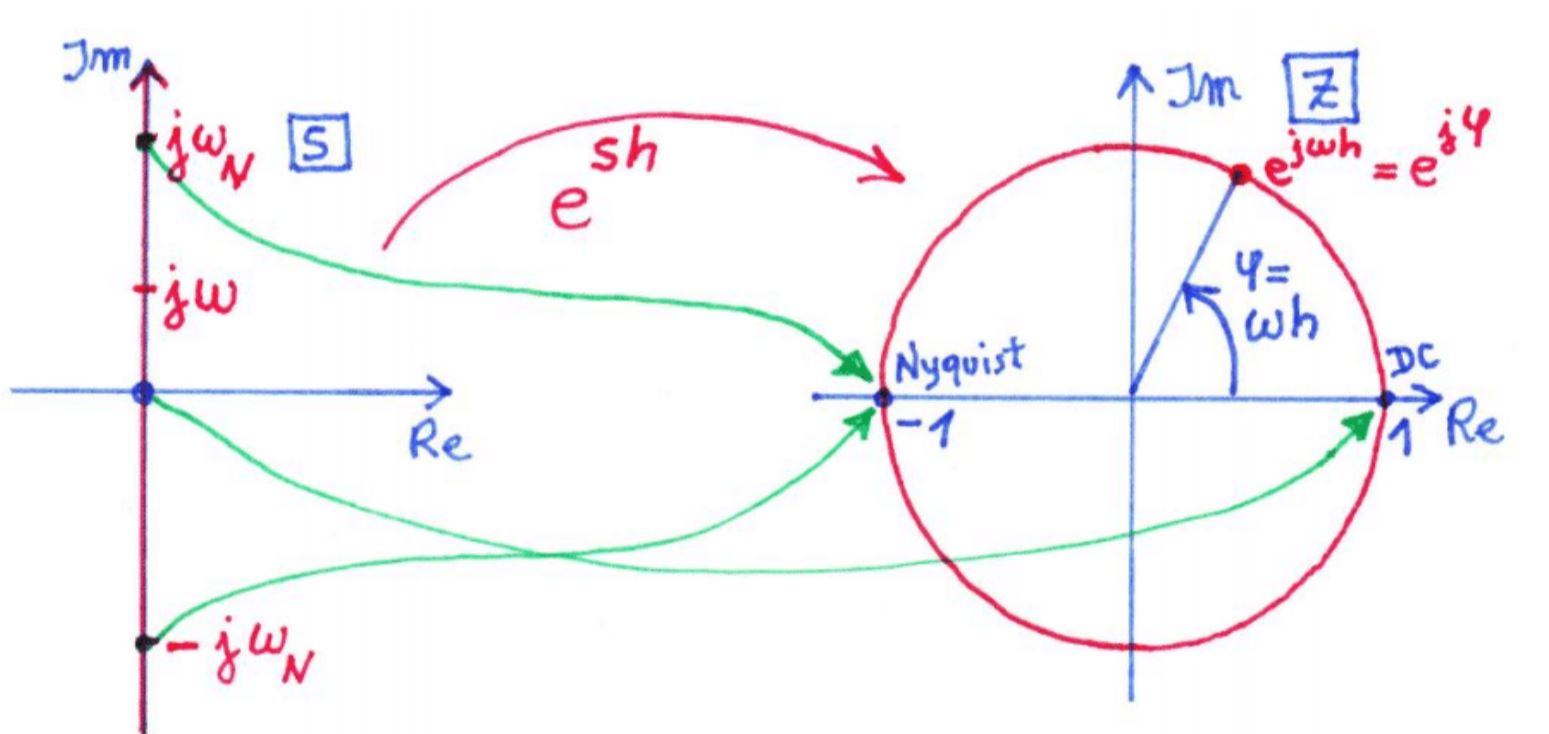 Im
jω_N
S
e^{sh}
jω
Re
-jω_N
Im
Z
e^{jωh} = e^{jφ}
φ=
ωh
Nyquist
-1
DC
1
Re